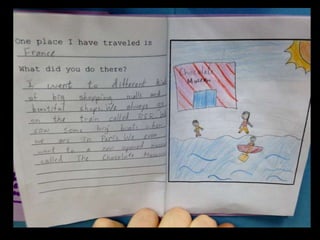 One place I have traveled is
France
What did you do there?
I went to different kinds
of big shopping malls and
butiful shops. We always go
on the train called RER. We
saw some big boats when
we are in Paris. We even
went to a new opened museum
called The Chocolate Museum
Chocolate
Museum